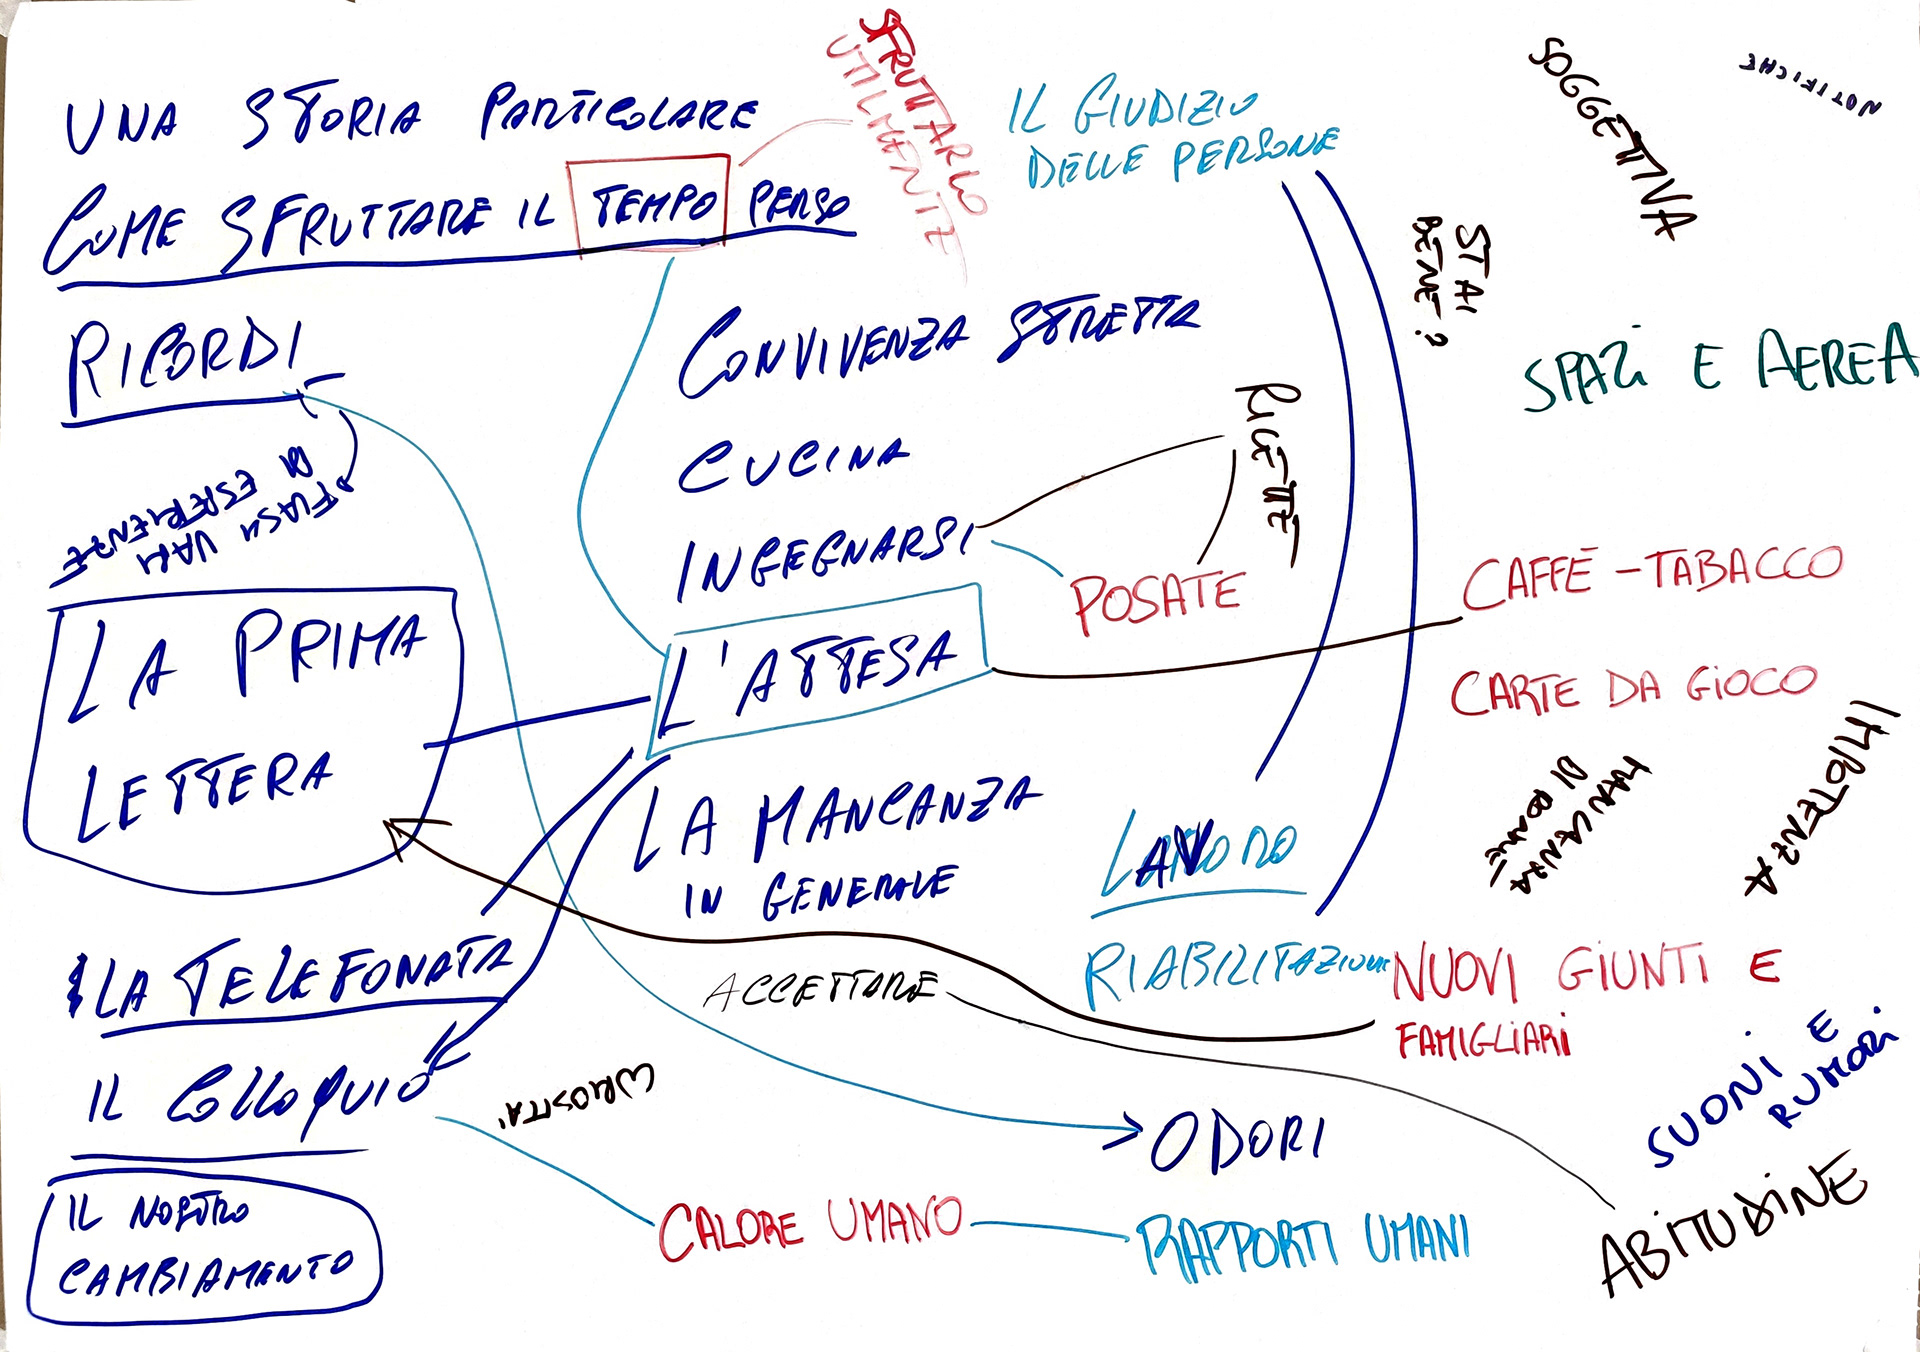 UNA STORIA PARTICOLARE
COME SFRUTTARE IL TEMPO PERSO
SFRUTTARLO
UTILMENTE
IL GIUDIZIO
DELLE PERSONE
SOGGETTIVA
NOTIFICHE
STAI
BENE?
RICORDI
FLASH VARI
DI ESPERIENZE
CONVIVENZA STRETTA
CUCINA
INGEGNARSI
RIGETTE
POSATE
SPAZi E AEREA
LA PRIMA
LETTERA
L'ATTESA
CAFFÈ - TABACCO
CARTE DA GiOCO
LA MANCANZA
IN GENERALE
LAVORO
RIABILITAZIONE
MANCANZA
IMPOTENZA
LA TELEFONATA
ACCETTARE
NUOVI GiUNTI E
FAMIGLiARI
IL COLLOQUIO
CURIOSITA'
ODORI
SUONI E
RUMORI
IL NOSTRO
CAMBIAMENTO
CALORE UMANO
RAPPORTI UMANI
ABITUDiNE